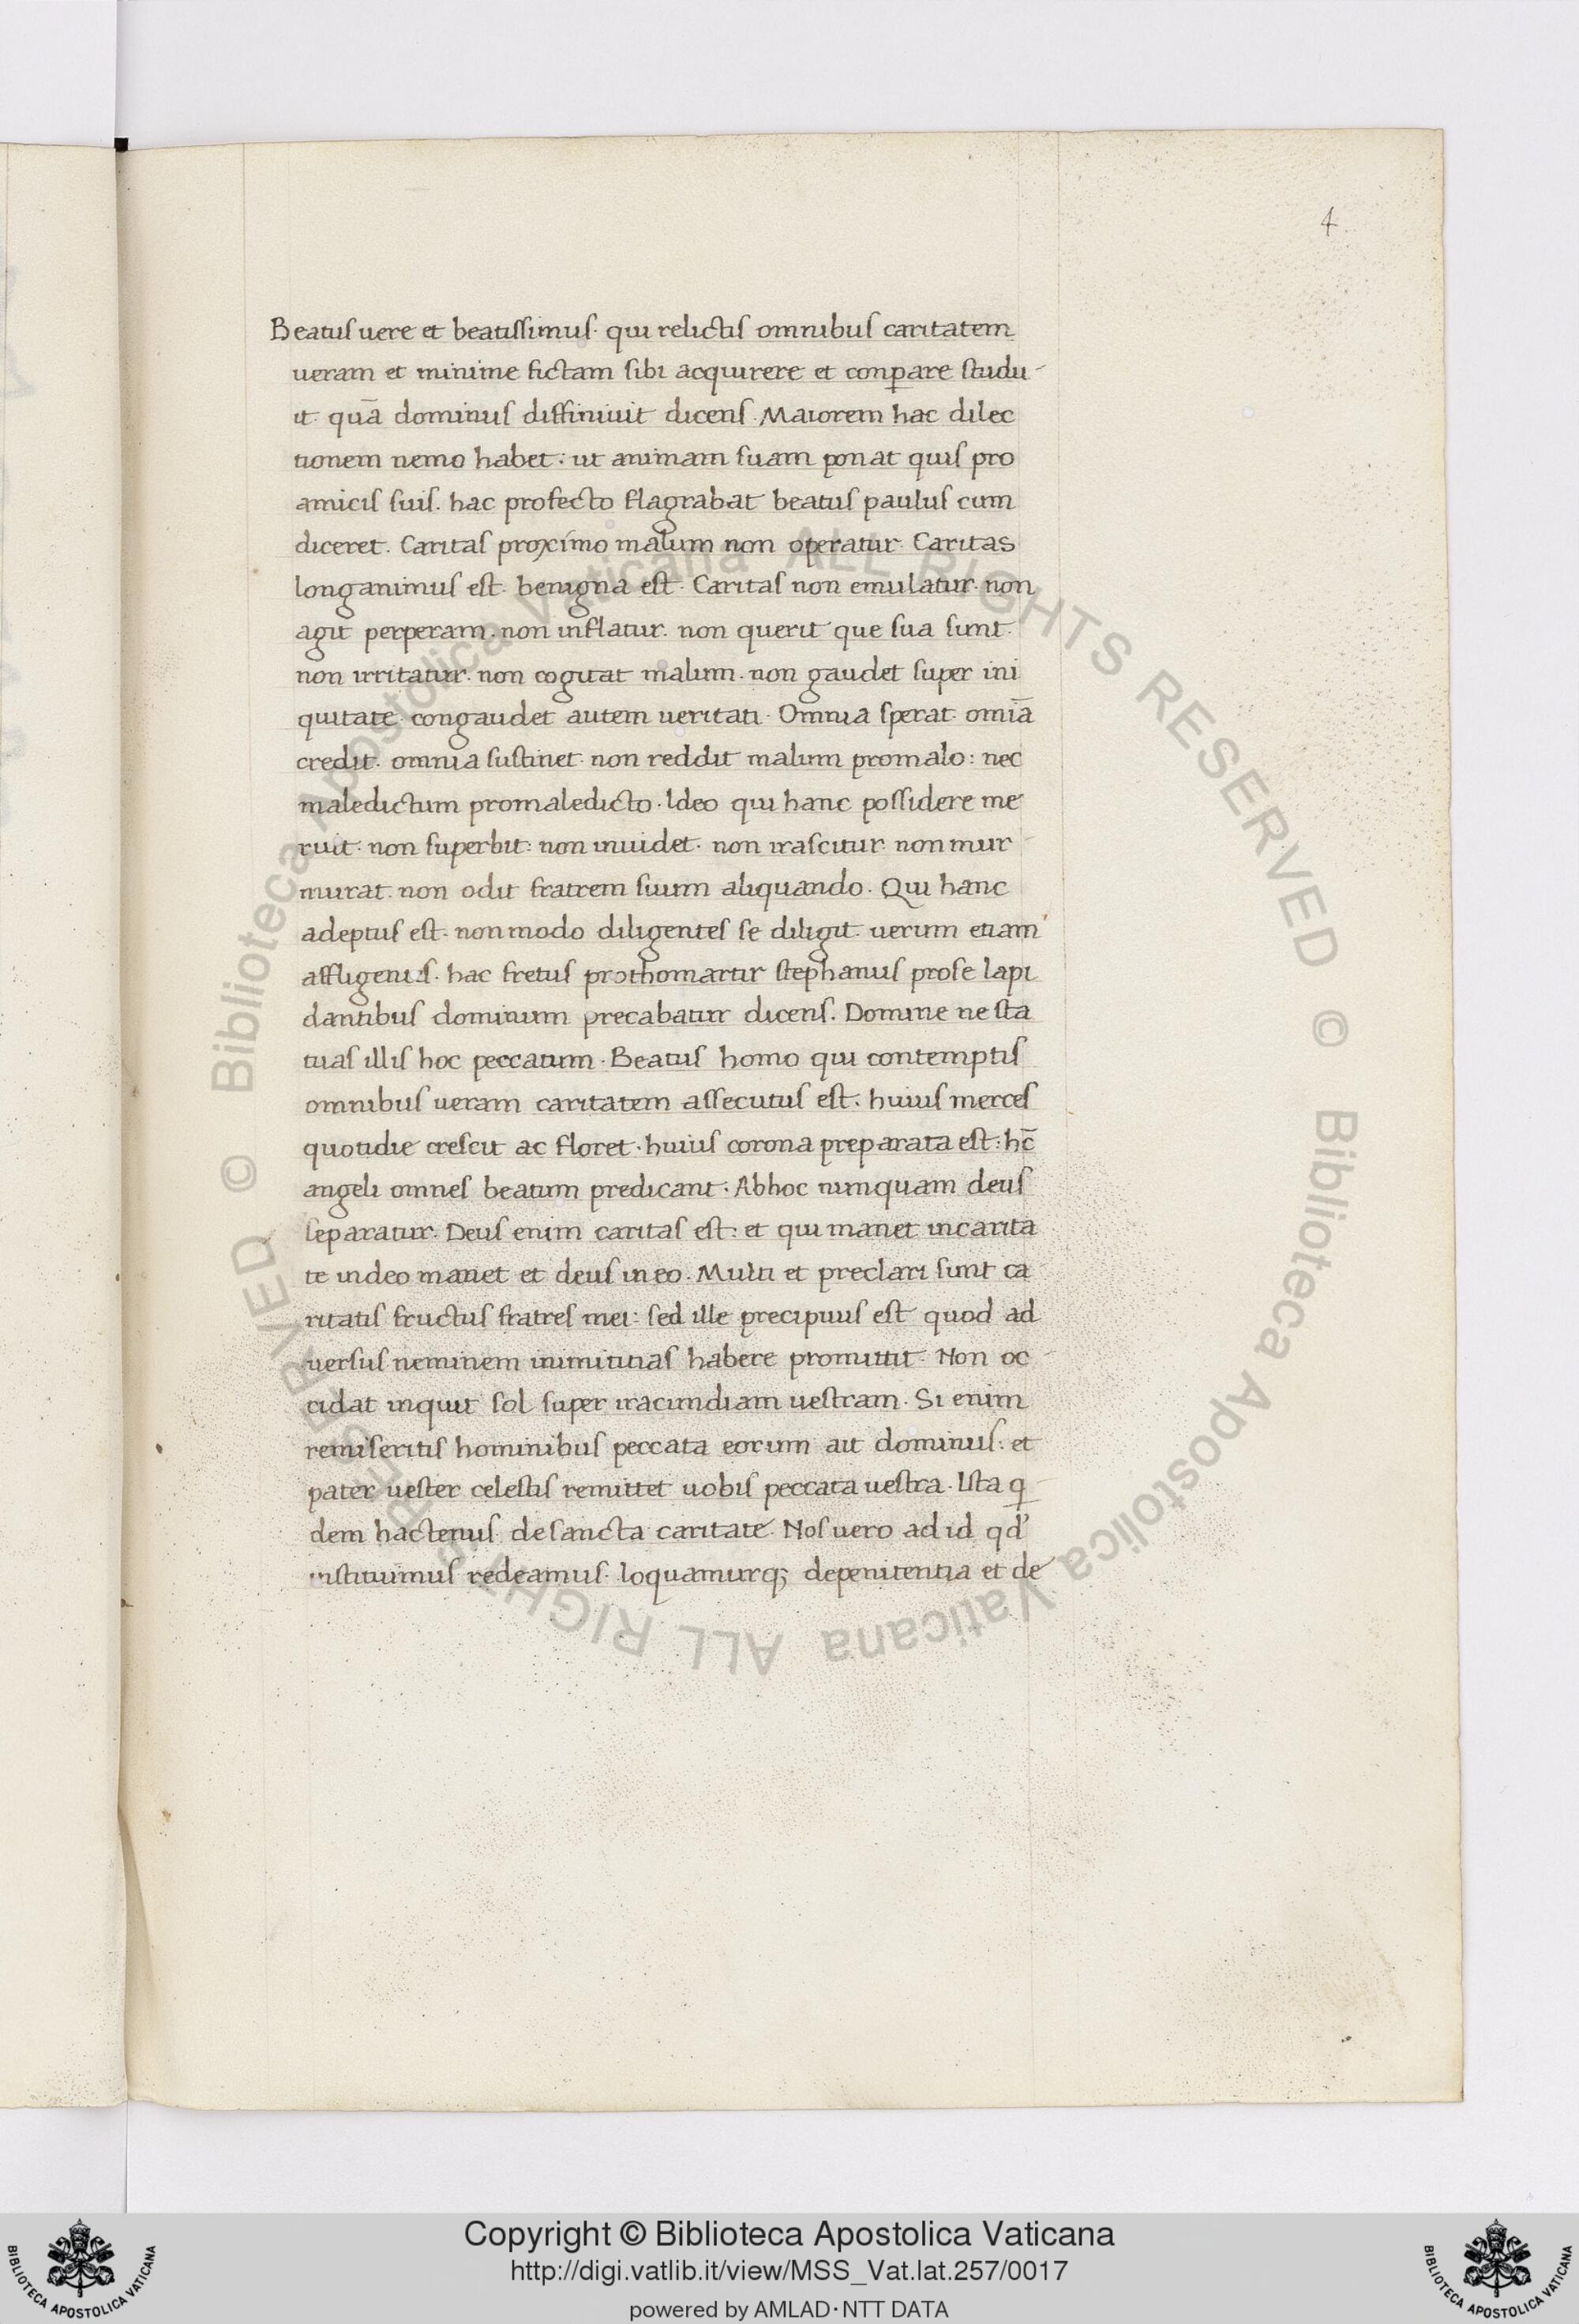 4
Beatus uere et beatissimus. qui relictis omnibus caritatem
ueram et minime fictam sibi acquirere et conꝑare studu-
it. quā dominus diffiniuit dicens. Maiorem hac dilec
tionem nemo habet: ut animam suam ponat quis pro
amicis suis. hac profecto flagrabat beatus paulus cum
diceret. Caritas proximo malum non operatur. Caritas
longanimus est. benigna est. Caritas non emulatur. non
agit perperam. non inflatur. non querit que sua sunt.
non irritatur. non cogitat malum. non gaudet super ini
quitate. congaudet autem ueritati. Omnia sperat. omīa
credit. omnia sustinet. non reddit malum promalo: nec
maledictum promaledicto. Ideo qui hanc possidere me
ruit. non superbit: non inuidet. non irascitur. non mur-
murat. non odit fratrem suum aliquando. Qui hanc
adeptus est. nonmodo diligentes se diligit. uerum etiam
affligentis. hac fretus prothomartir stephanus prose lapi
dantibus dominum precabatur dicens. Domine ne sta
tuas illis hoc peccatum. Beatus homo qui contemptis
omnibus ueram caritatem assecutus est. huius merces
quotidie crescit ac floret. huius corona preparata est: hc̄
angeli omnes beatum predicant. Abhoc numquam deus
separatur. Deus enim caritas est: et qui manet incarita
te indeo manet et deus in eo. Multi et preclari sunt ca
ritatis fructus fratres mei: sed ille precipuus est quod ad
uersus neminem inimititias habere promittit. Non oc-
cidat inquit sol super iracundiam uestram. Si enim
remiseritis hominibus peccata eorum ait dominus: et
pater uester celestis remittet uobis peccata uestra. Ista q-
dem hactenus desancta caritate. Nos uero ad id qd'
instituimus redeamus. loquamurq; depenitentia et de
© Biblioteca Apostolica Vaticana ALL RIGHTS RESERVED © Biblioteca Apostolica Vaticana ALL RIGHTS RESERVED
Copyright © Biblioteca Apostolica Vaticana
http://digi.vatlib.it/view/MSS_Vat.lat.257/0017
powered by AMLAD·NTT DATA
BIBLIOTECA APOSTOLICA VATICANA
BIBLIOTECA APOSTOLICA VATICANA